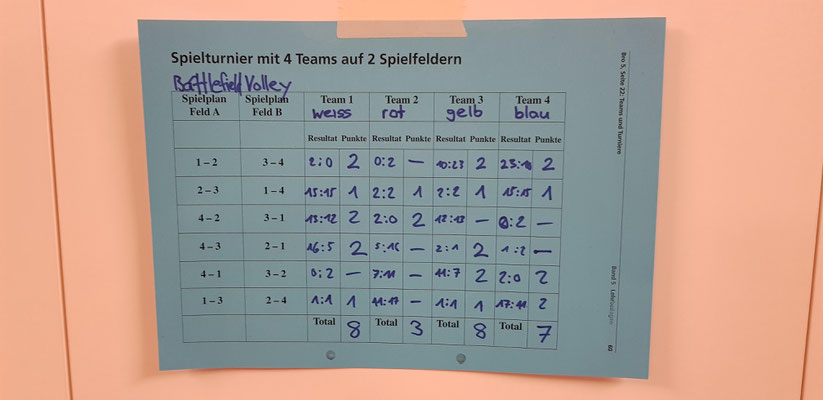 Spielturnier mit 4 Teams auf 2 Spielfeldern
Battlefield Volley
Spielplan Feld A Spielplan Feld B Team 1 weiss Team 2 rot Team 3 gelb Team 4 blau
Resultat Punkte Resultat Punkte Resultat Punkte Resultat Punkte
1 – 2 3 – 4 2:0 2 0:2 — 10:23 2 23:10 2
2 – 3 1 – 4 15:15 1 2:2 1 2:2 1 15:15 1
4 – 2 3 – 1 13:12 2 2:0 2 12:13 — 0:2 —
4 – 3 2 – 1 16:5 2 5:16 — 2:1 2 1:2 —
4 – 1 3 – 2 0:2 — 7:11 — 11:7 2 2:0 2
1 – 3 2 – 4 1:1 1 11:17 — 1:1 1 17:11 2
Total 8 Total 3 Total 8 Total 7
Bro 5, Seite 22: Teams und Turniere
Band 5
60